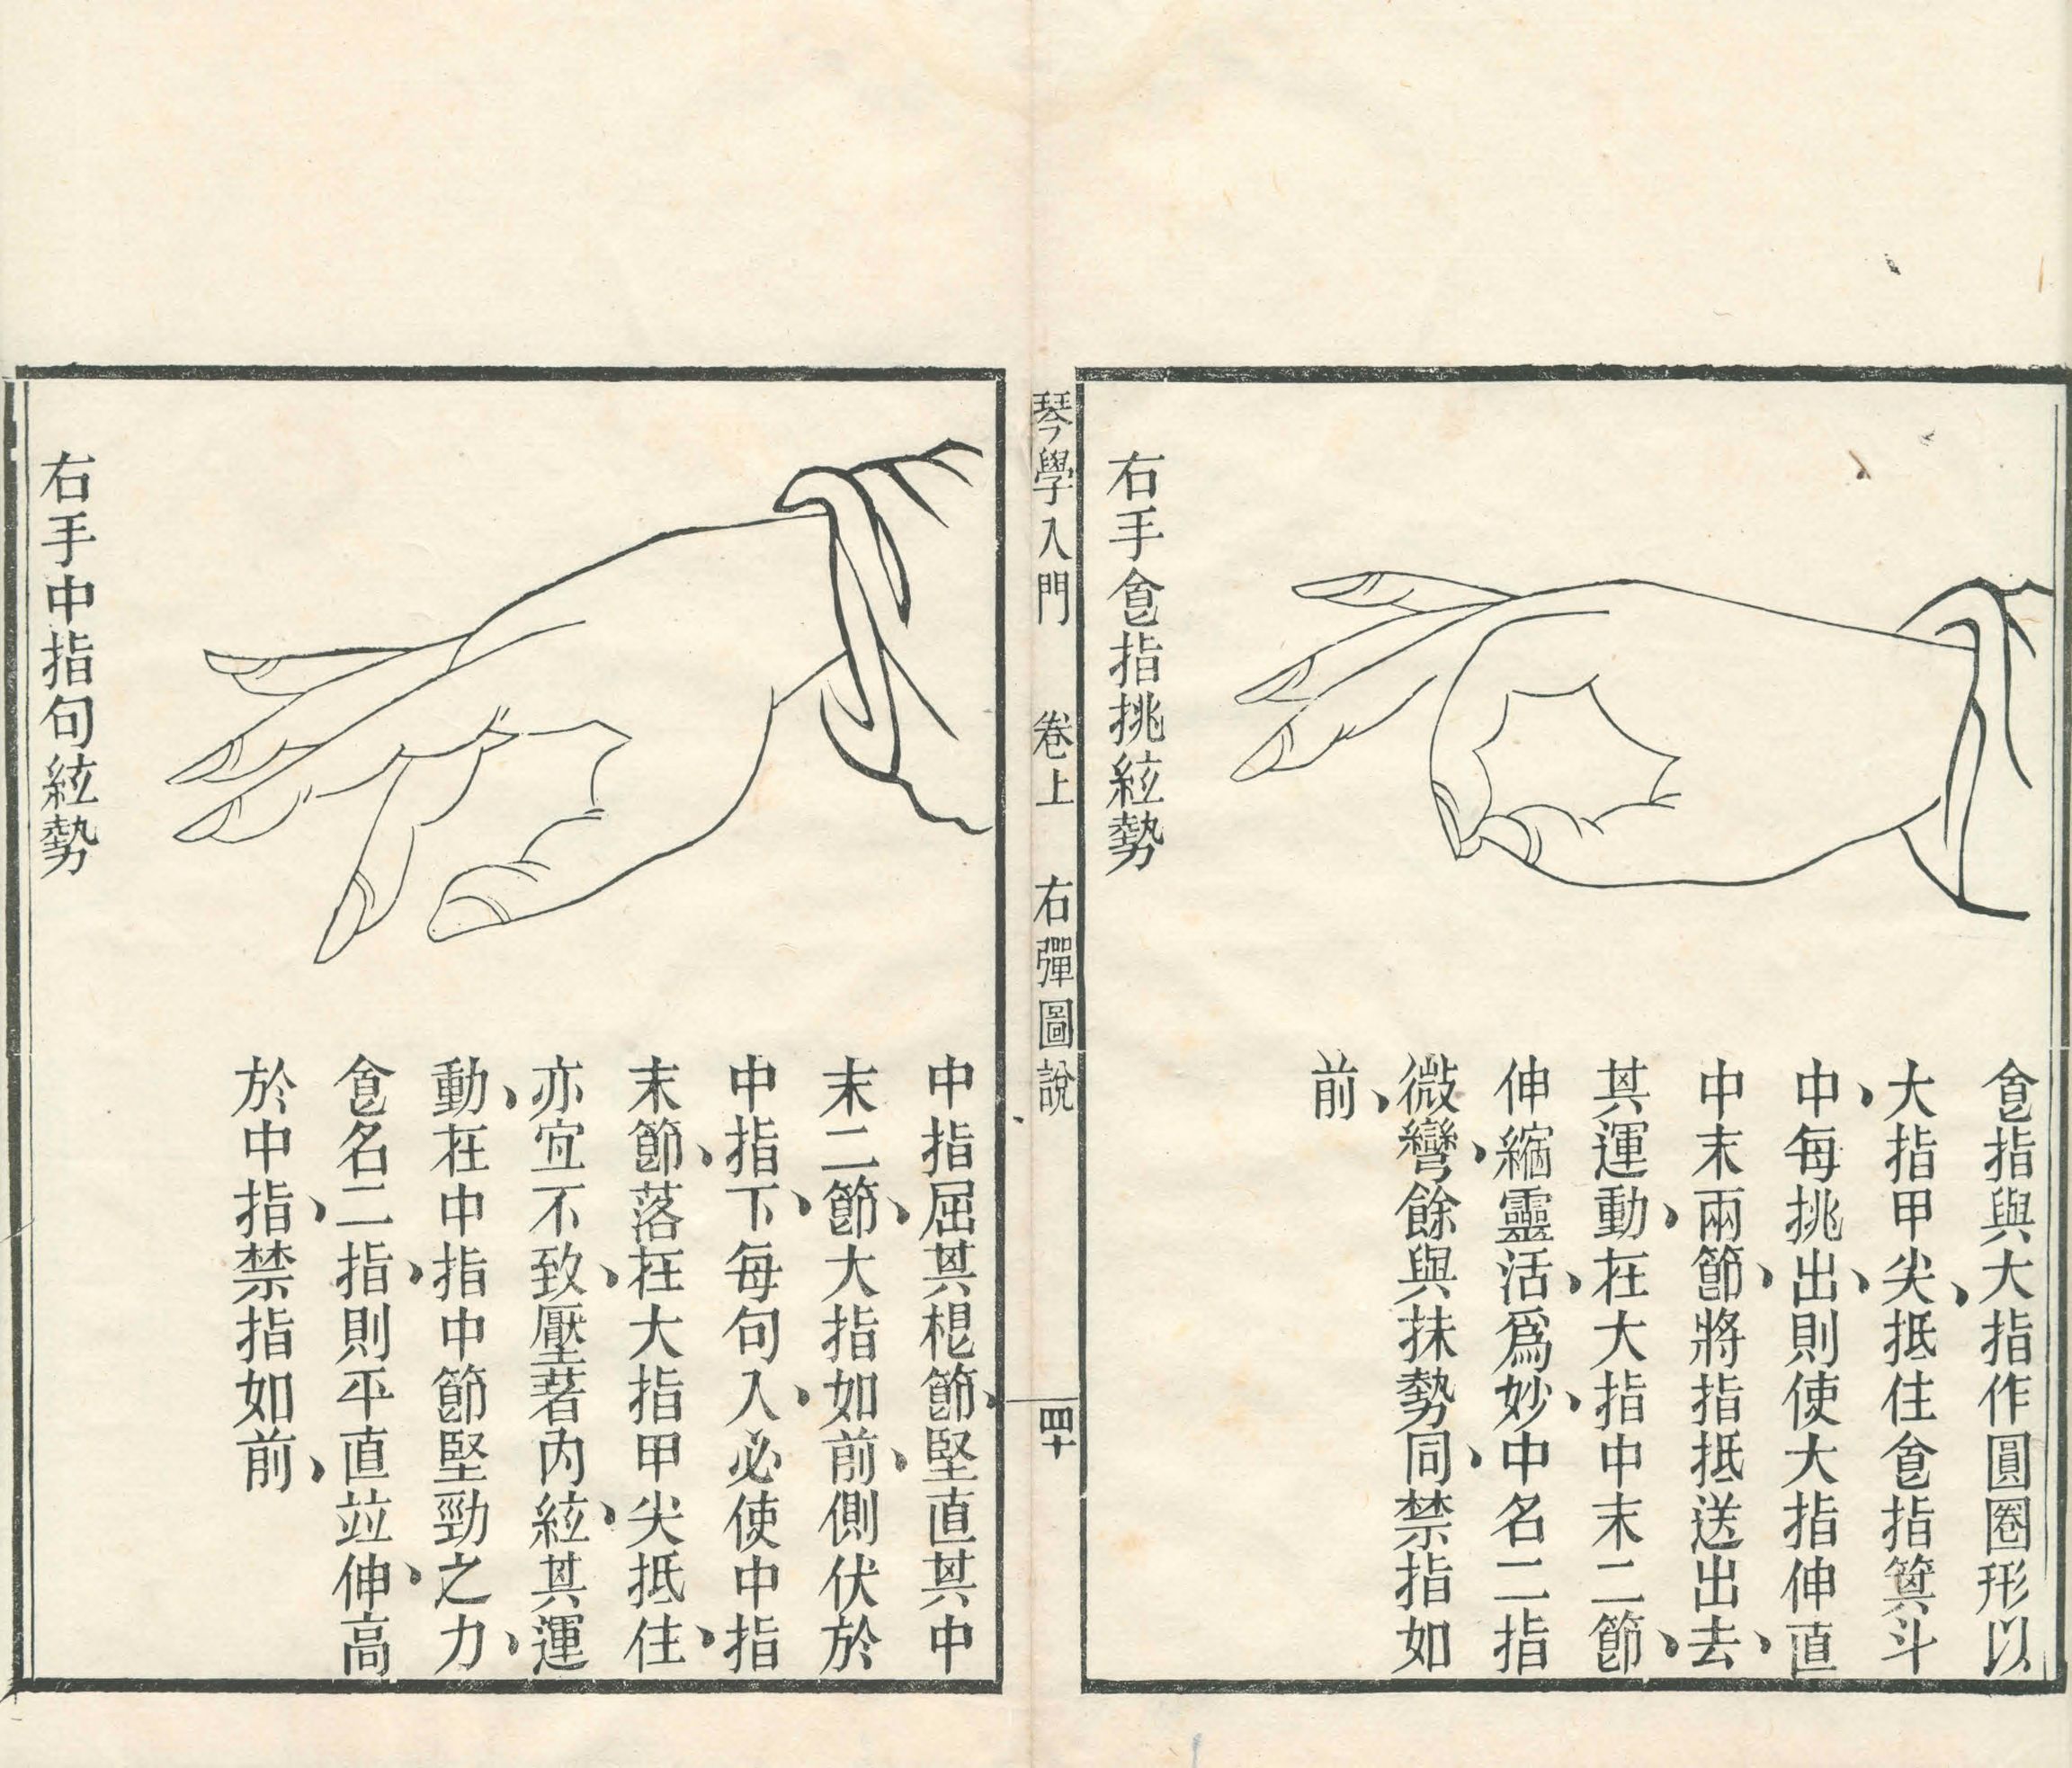 右手食指挑絃勢
食指與大指作圓圈形以
大指甲尖、抵住食指箕斗
中、每挑出、則使大指伸直
中末兩節、將指抵送出去、
其運動、在大指中末二節、
伸縮靈活、爲妙、中名二指
微彎、餘與抹勢同、禁指如
前、
琴學入門 卷上 右彈圖說 四十
右手中指句絃勢
中指屈其棍節、堅直其中
末二節、大指如前、側伏於
中指下、每句入、必使中指
末節、落在大指甲尖抵住、
亦宜不致、壓著內絃、其運
動、在中指中節堅勁之力、
食名二指、則平直竝伸、高
於中指、禁指如前、